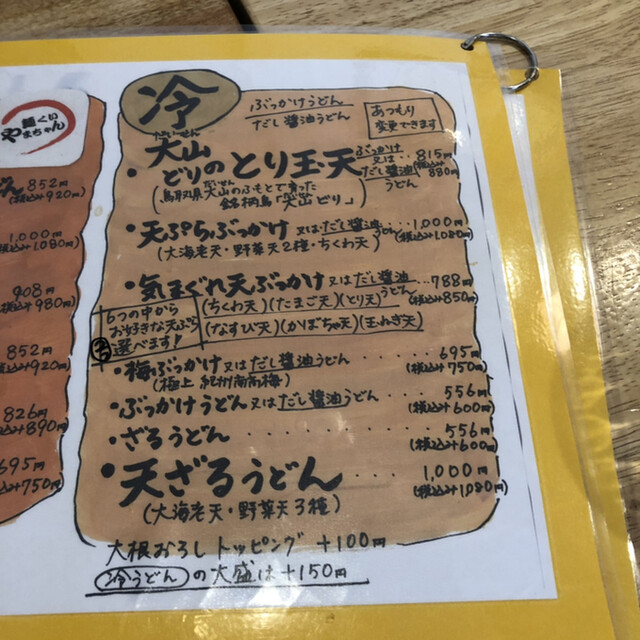 麺くい
やまちゃん
うどん 852円
(税込み920円)
1,000円
(税込み1,080円)
908円
(税込み980円)
852円
(税込み920円)
826円
(税込み890円)
695円
(税込み750円)
冷
ぶっかけうどん
だし醤油うどん
あつもり
変更できます
だいせん
・大山どりのとり玉天 ぶっかけ又はだし醤油うどん ‥815円
(税込み880円)
(鳥取県大山のふもとで育った
銘柄鳥「大山どり」)
・天ぷらぶっかけ 又はだし醤油うどん …1,000円
(税込み1,080円)
(大海老天・野菜天2種・ちくわ天)
・気まぐれ天ぶっかけ 又はだし醤油うどん …788円
(税込み850円)
6つの中から
お好きな天ぷら
2つ選べます!
(ちくわ天)(たまご天)(とり天)
(なすび天)(かぼちゃ天)(玉ねぎ天)
・梅ぶっかけ 又はだし醤油うどん ‥‥ 695円
(税込み750円)
(極上 紀州南高梅)
・ぶっかけうどん 又はだし醤油うどん ‥‥ 556円
(税込み600円)
・ざるうどん ‥‥‥‥ 556円
(税込み600円)
・天ざるうどん ‥‥ 1,000円
(税込み1,080円)
(大海老天・野菜天3種)
大根おろしトッピング +100円
冷うどんの大盛は+150円